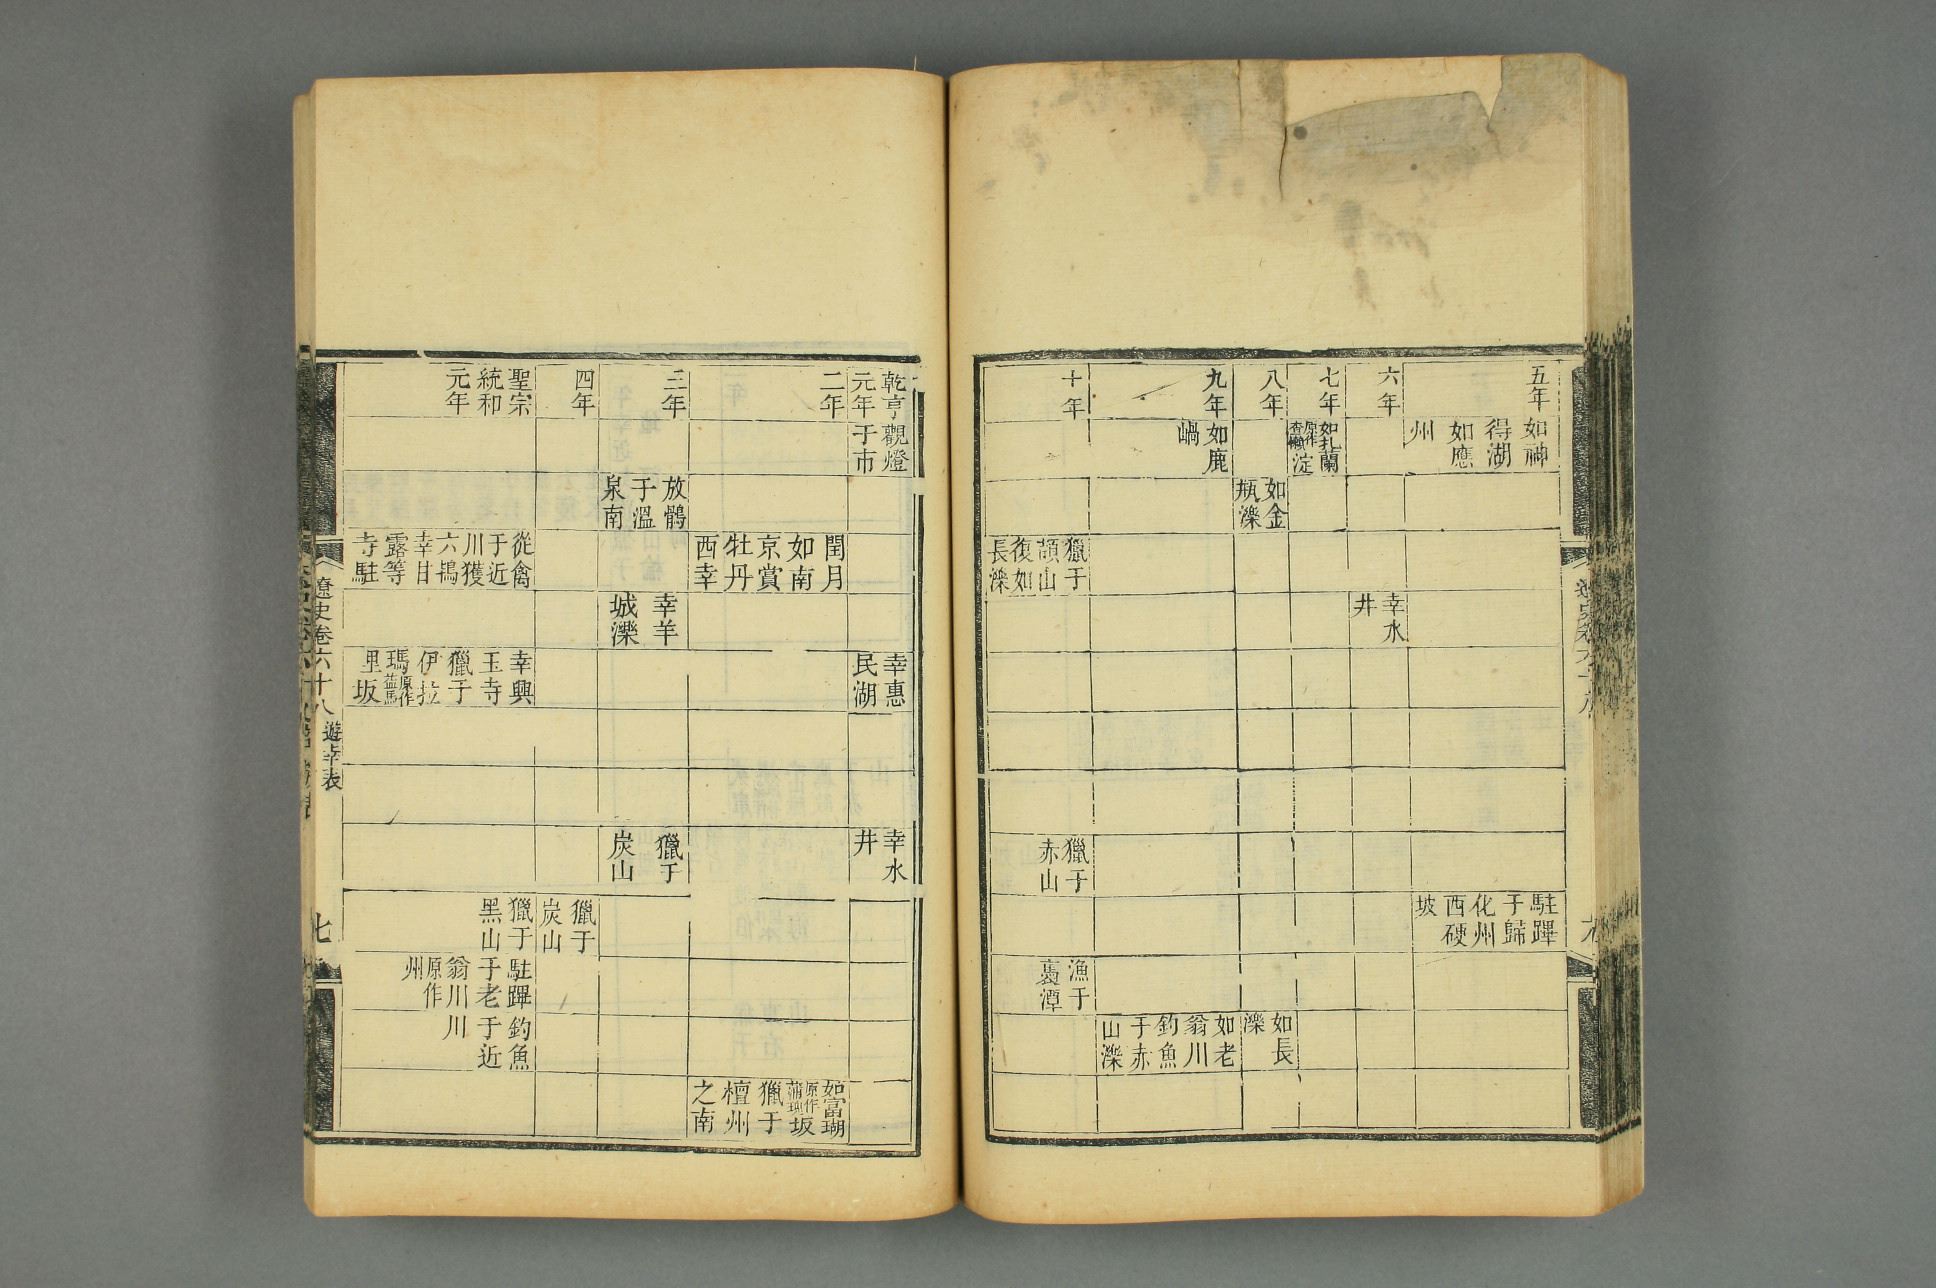 五年
如神
得湖
如應
州
駐蹕
于歸
化州
西硬
坡
六年
幸水
井
七年
如扎蘭
原作
查懶
淀
八年
如金
瓶濼
如長
濼
九年
如鹿
崵
如老
翁川
釣魚
于赤
山濼
十年
獵于
頡山
復如
長濼
獵于
赤山
漁于
潭
乾亨
元年
觀燈
于市
幸惠
民湖
幸水
井
二年
閏月
如南
京賞
牡丹
西幸
如富瑚
原作
蒲瑰
坂
獵于
檀州
之南
三年
放鶻
于溫
泉南
幸羊
城濼
獵于
炭山
四年
獵于
炭山
聖宗
統和
元年
從禽
于近
川獲
六鴇
幸甘
露等
寺駐
幸興
玉寺
獵于
伊拉
瑪
原作
里坂
獵于
黑山
駐蹕
于老
翁川
原作
州
釣魚
于近
川
遼史卷六十八
遊幸表
七